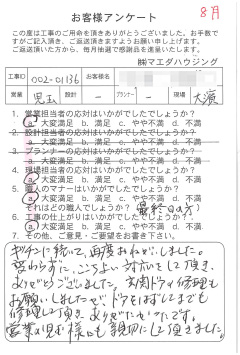 8月
お客様アンケート
この度は工事のご用命を頂きありがとうございました。お手数ですがご記入頂き、ご返送頂きますようお願い申し上げます。
ご返送頂いた方から、毎月抽選で感謝品を進呈いたします。
㈱マエダハウジング
工事ID 002-01136 お客様名
営業 児玉 設計 - プランナー - 現場 大濱
1. 営業担当者の応対はいかがでしたでしょうか?
a. 大変満足 b. 満足 c. やや不満 d. 不満
2. 設計担当者の応対はいかがでしたでしょうか?
a. 大変満足 b. 満足 c. やや不満 d. 不満
3. プランナーの応対はいかがでしたでしょうか?
a. 大変満足 b. 満足 c. やや不満 d. 不満
4. 現場担当者の応対はいかがでしたでしょうか?
a. 大変満足 b. 満足 c. やや不満 d. 不満
5. 職人のマナーはいかがでしたでしょうか?
a. 大変満足 b. 満足 c. やや不満 d. 不満
それはどの職人でしょうか?
6. 工事の仕上がりはいかがでしたでしょうか?
a. 大変満足 b. 満足 c. やや不満 d. 不満
7. その他、ご意見・ご要望をお書き下さい。
キッチンに続いて、再度お願いしました。
変わらずに、ここちよい対応をして頂き、
ありがとうございました。玄関ドアの修理も
お願いしましたが、
修理して頂きありがたかったです。
営業の児玉様にも親切にして頂きました。